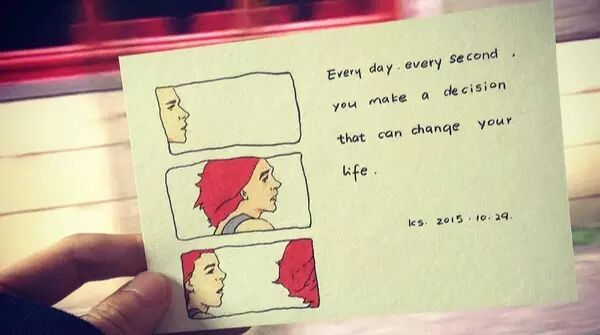 Every day. every second.
you make a decision
that can change your
life.
ks. 2015.10.29.